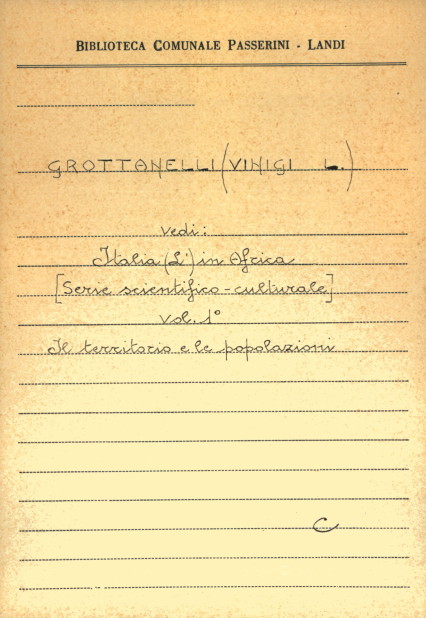 BIBLIOTECA COMUNALE PASSERINI - LANDI
GROTTANELLI (VINIGI L.)
vedi:
Italia (L') in Africa
[Serie scientifico-culturale]
vol. 1°
Il territorio e le popolazioni
C